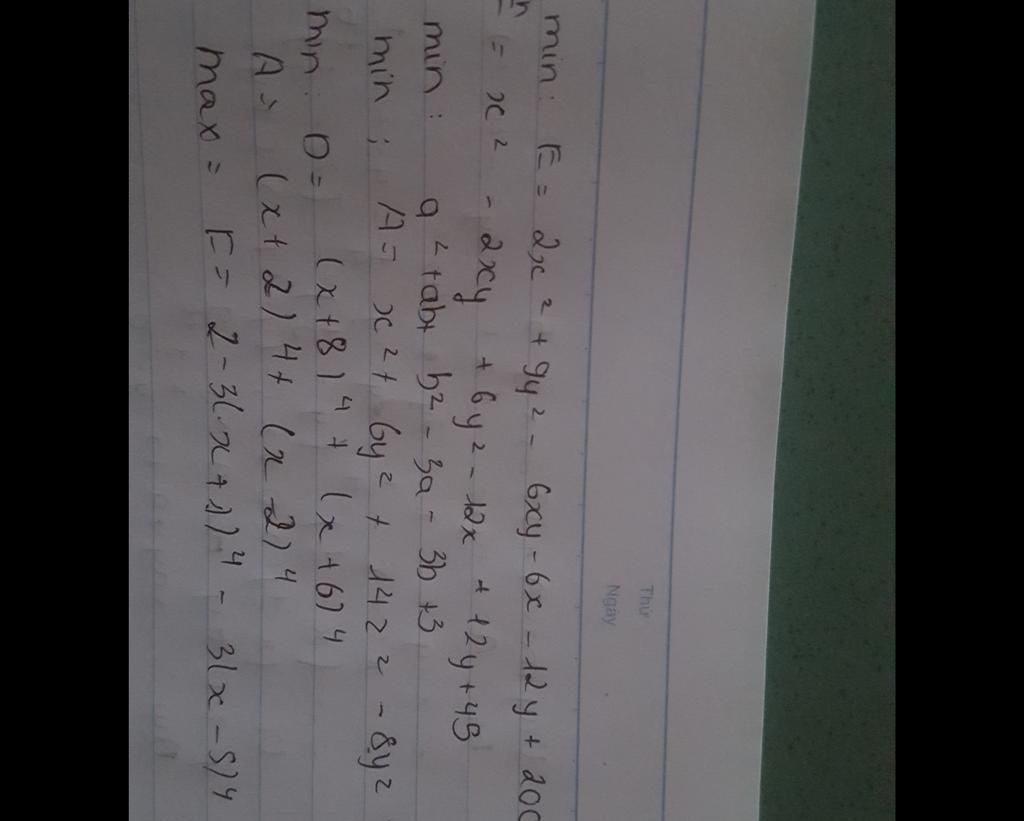 Thứ
Ngày
min: E = 2x² + 9y² - 6xy - 6x - 12y + 200
= x² - 2xy + 6y² - 12x + 12y + 45
min: a² + ab + b² - 3a - 3b + 3
min; A = x² + 6y² + 14z² - 8yz
min: D = (x+8)⁴ + (x+6)⁴
A = (x+2)⁴ + (x-2)⁴
max = F = 2 - 3(x+1)⁴ - 3(x-5)⁴